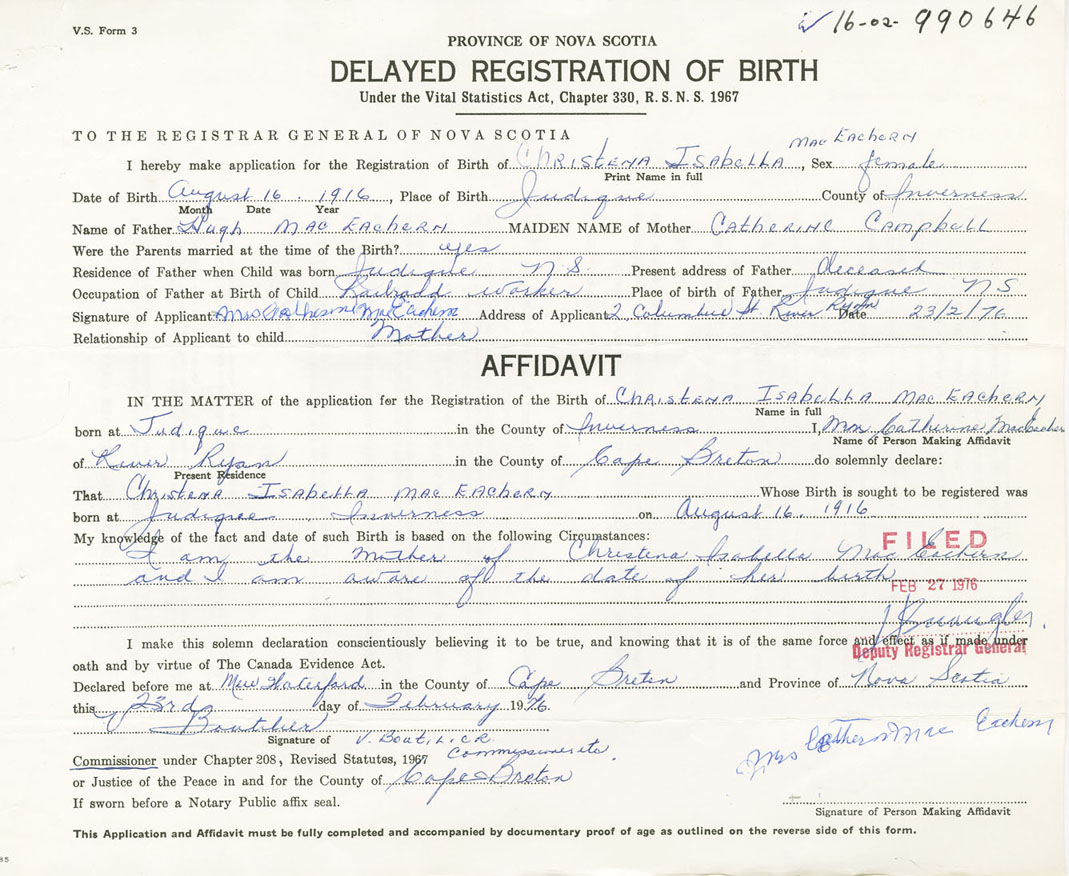 V.S. Form 3
16-02-990646
PROVINCE OF NOVA SCOTIA
DELAYED REGISTRATION OF BIRTH
Under the Vital Statistics Act, Chapter 330, R. S. N. S. 1967
TO THE REGISTRAR GENERAL OF NOVA SCOTIA
I hereby make application for the Registration of Birth of CHRISTENA ISABELLA MAC EACHERN, Sex female
Print Name in full
Date of Birth August 16. 1916, Place of Birth Judique County of Inverness
Month Date Year
Name of Father Hugh MAC EACHERN MAIDEN NAME of Mother CATHERINE CAMPBELL
Were the Parents married at the time of the Birth? yes
Residence of Father when Child was born Judique N.S. Present address of Father Deceased
Occupation of Father at Birth of Child Railroad worker Place of birth of Father Judique NS
Signature of Applicant Mrs Catherine MacEachern Address of Applicant 2 Columbus St. River Ryan Date 23/2/76
Relationship of Applicant to child Mother
AFFIDAVIT
IN THE MATTER of the application for the Registration of the Birth of CHRISTENA ISABELLA MAC EACHERN
Name in full
born at Judique in the County of Inverness I, Mrs Catherine MacEachern
Name of Person Making Affidavit
of River Ryan in the County of Cape Breton do solemnly declare:
Present Residence
That Christena ISABELLA MAC EACHERN Whose Birth is sought to be registered was
born at Judique, Inverness on August 16, 1916
My knowledge of the fact and date of such Birth is based on the following Circumstances:
I am the Mother of Christena Isabella MacEachern
and I am aware of the date of her birth
FILED
FEB 27 1976
Deputy Registrar General
I make this solemn declaration conscientiously believing it to be true, and knowing that it is of the same force and effect as if made under
oath and by virtue of The Canada Evidence Act.
Declared before me at New Waterford in the County of Cape Breton and Province of Nova Scotia
this 23rd day of February 1976.
Signature of V. BOUTILIER
Commissioner under Chapter 208, Revised Statutes, 1967 Commissioner etc
or Justice of the Peace in and for the County of Cape Breton
If sworn before a Notary Public affix seal.
Mrs Catherine Mac Eachern
Signature of Person Making Affidavit
This Application and Affidavit must be fully completed and accompanied by documentary proof of age as outlined on the reverse side of this form.